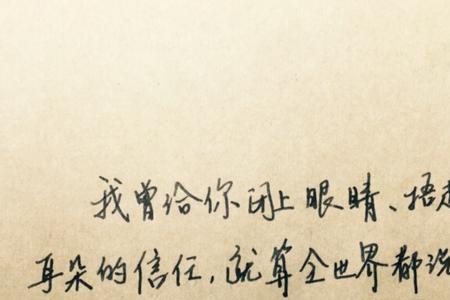 我曾给你闭上眼睛、捂起
耳朵的信任，就算全世界都说